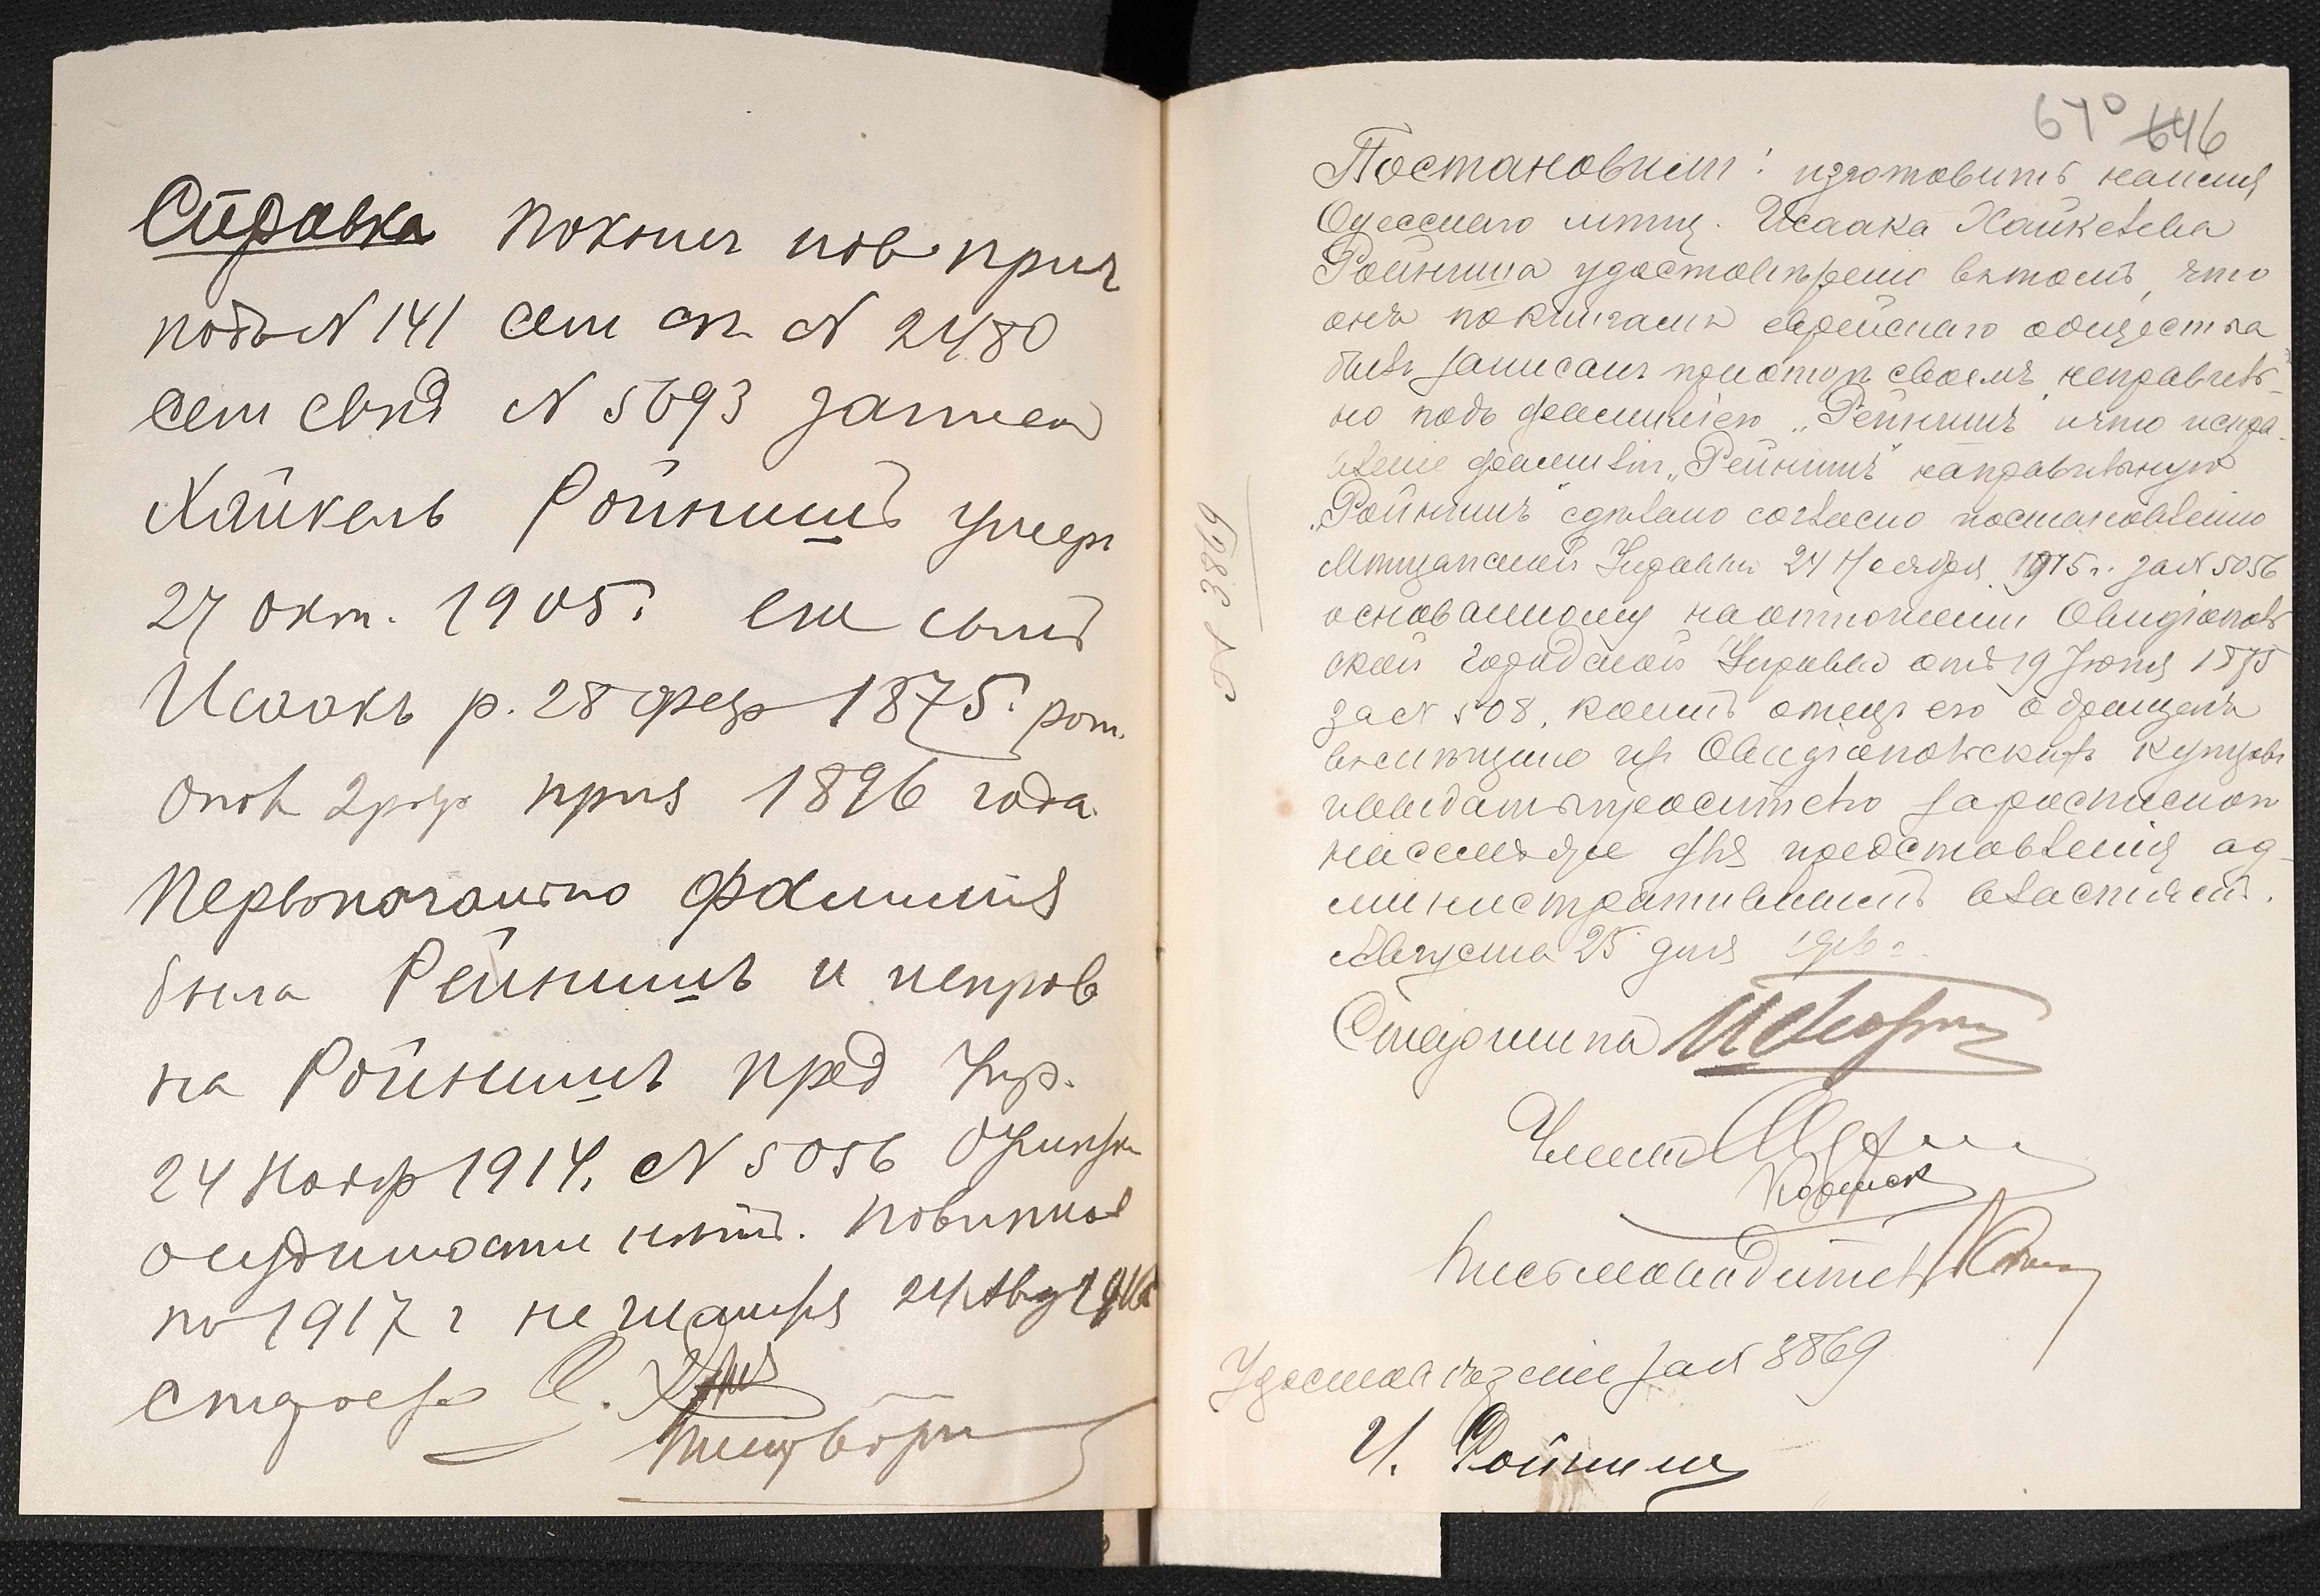 Справка По книг нов прич
подъ N 141 сем сп. N 2480
сем свид N 5693 записан
Хайкель Ройнишъ умер
27 окт. 1905г. его сынъ
Исаакъ р. 28 февр 1875г. рат.
опол 2 разр приз 1896 года
Первоначально фамилия
была Рейнишъ и исправ
на Ройнишъ пред Упр.
24 Ноябр 1914г. N 5056
судимости нѣтъ. Повинност
по 1917 г не 24 Авг 1916
староста
670 646
Постановили: изготовить на имя
Одесскаго мѣщ. Исаака Хайкелева
Ройниша удостовѣреніе въ томъ, что
онъ по книгамъ еврейскаго общества
былъ записанъ при отцѣ своемъ неправиль-
но подъ фамиліею „Рейнишъ" и что испра-
вленіе фамиліи „Рейнишъ" на правильную
„Ройнишъ" сдѣлано согласно постановленію
Мѣщанской Управы 24 Ноября 1915г. за N 5056
основанному на отношеніи Овидіополь
ской Городской Управы отъ 19 Іюня 1875
за N 508, коимъ отецъ его обращенъ
въ мѣщане изъ Овидіопольскихъ купцовъ
и выдать просителю за роспискою
на семъ же для представленія ад-
министративнымъ властямъ.
Августа 25 дня 1916г.
Старшина
Члены
Письмоводитель
Удостовѣреніе за N 3869
И. Ройниш
N 3869